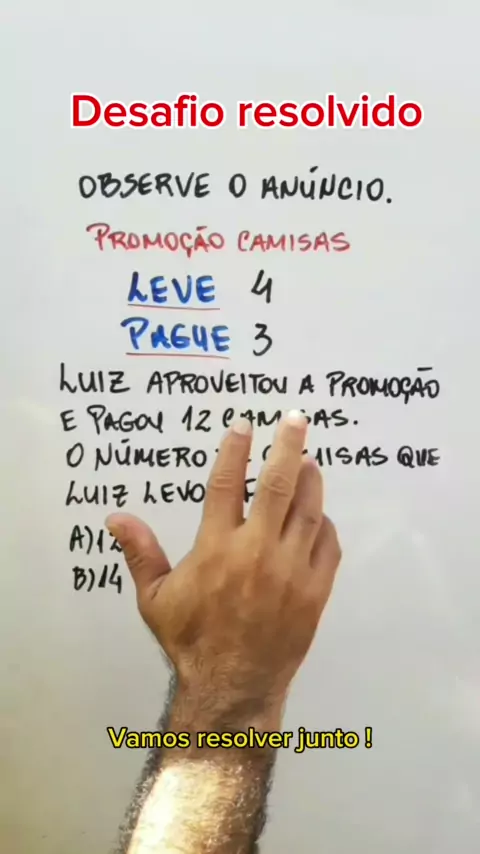 Desafio resolvido
OBSERVE O ANÚNCIO.
PROMOÇÃO CAMISAS
LEVE 4
PAGUE 3
LUIZ APROVEITOU A PROMOÇÃO
E PAGOU 12 CAMISAS.
O NÚMERO CAMISAS QUE
LUIZ
A)12
B)14
Vamos resolver junto !